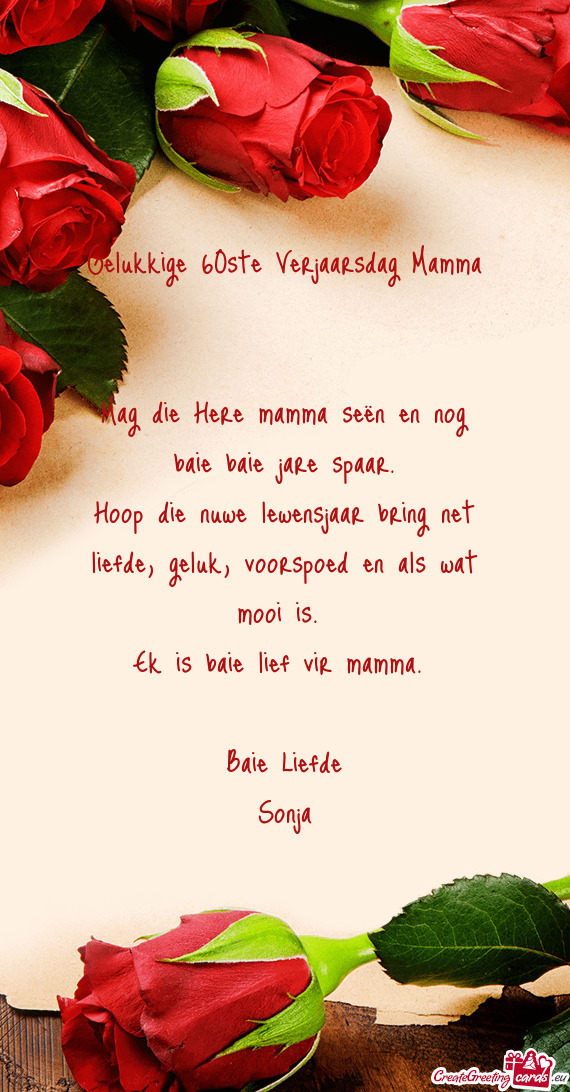 Gelukkige 60ste Verjaarsdag Mamma
Mag die Here mamma seën en nog
baie baie jare spaar.
Hoop die nuwe lewensjaar bring net
liefde, geluk, voorspoed en als wat
mooi is.
Ek is baie lief vir mamma.
Baie Liefde
Sonja
CreateGreetingcards.eu